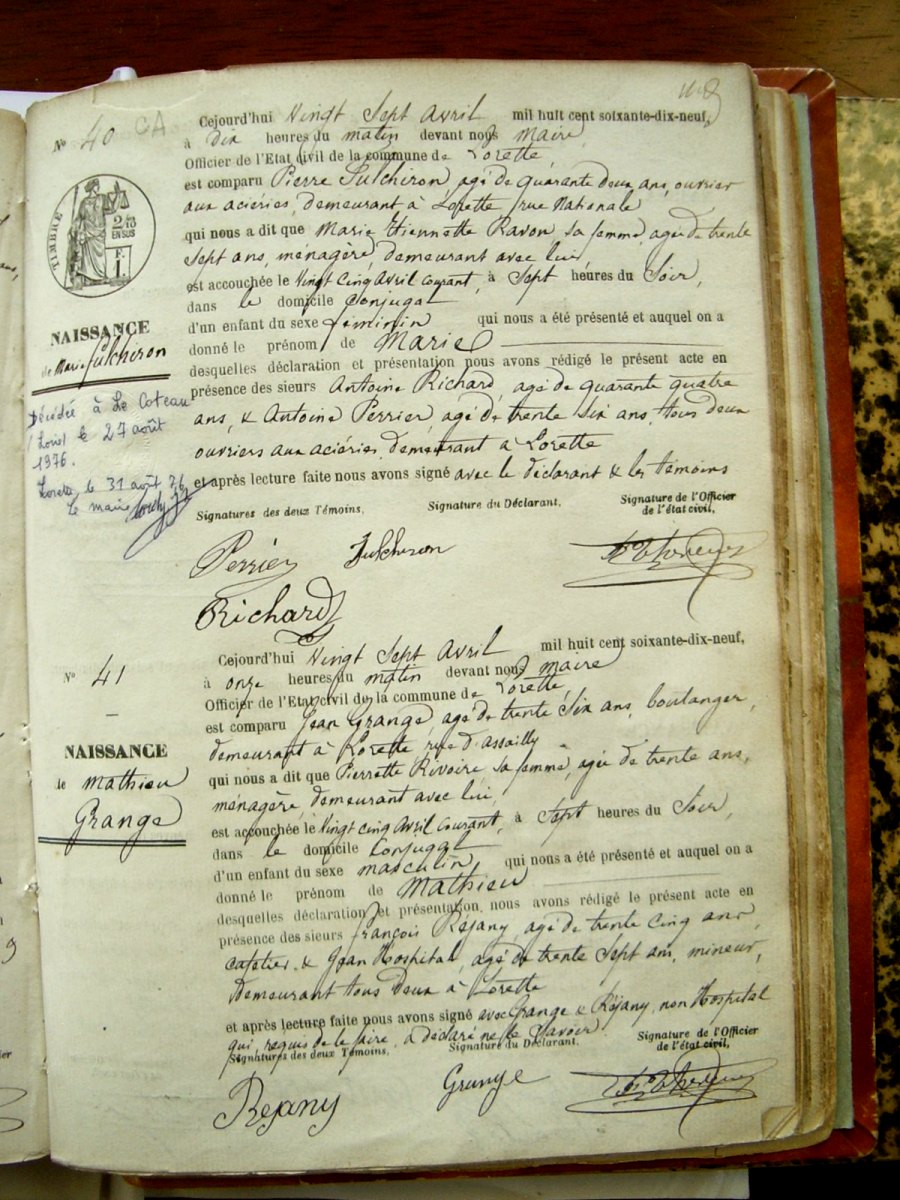 Nº 40 CA
TIMBRE
2/10
EN SUS
F.
1.
NAISSANCE
de Marie Fulchiron
Décédée à Le Coteau
(Loire) le 27 août
1976.
Lorette, le 31 août 76
Le maire
Cejourd'hui Vingt Sept Avril mil huit cent soixante-dix-neuf,
à Dix heures du matin devant nous maire
Officier de l'Etat civil de la commune de Lorette,
est comparu Pierre Fulchiron, agé de quarante deux ans, ouvrier
aux aciéries, demeurant à Lorette, rue Nationale
qui nous a dit que Marie Etiennette Ravon sa femme, agée de trente
sept ans, ménagère, demeurant avec lui,
est accouchée le Vingt Cinq Avril courant, à Sept heures du Soir,
dans le domicile Conjugal
d'un enfant du sexe féminin qui nous a été présenté et auquel on a
donné le prénom de Marie
desquelles déclaration et présentation nous avons rédigé le présent acte en
présence des sieurs Antoine Richard, agé de quarante quatre
ans, & Antoine Perrier, agé de trente Six ans, tous deux
ouvriers aux aciéries, demeurant à Lorette
et après lecture faite nous avons signé avec le déclarant & les témoins
Signatures des deux Témoins, Signature du Déclarant, Signature de l'Officier
de l'état civil,
Perrier Fulchiron
Richard
Nº 41
NAISSANCE
de Mathieu
Grange
Cejourd'hui Vingt Sept Avril mil huit cent soixante-dix-neuf,
à onze heures du matin devant nous maire
Officier de l'Etat civil de la commune de Lorette,
est comparu Jean Grange, agé de trente Six ans, boulanger,
demeurant à Lorette, rue d'assailly
qui nous a dit que Pierrette Rivoire sa femme, agée de trente ans,
ménagère, demeurant avec lui,
est accouchée le Vingt cinq Avril courant, à Sept heures du Soir,
dans le domicile Conjugal
d'un enfant du sexe masculin, qui nous a été présenté et auquel on a
donné le prénom de Mathieu
desquelles déclaration et présentation, nous avons rédigé le présent acte en
présence des sieurs françois Réjany, agé de trente Cinq ans,
cafetier, & Jean Hospital, agé de trente Sept ans, mineur,
demeurant tous deux à Lorette
et après lecture faite nous avons signé avec Grange & Réjany, non Hospital
qui, requis de le faire, a déclaré ne le Savoir
Signatures des deux Témoins, Signature du Déclarant. Signature de l'Officier
de l'état civil,
Rejany Grange